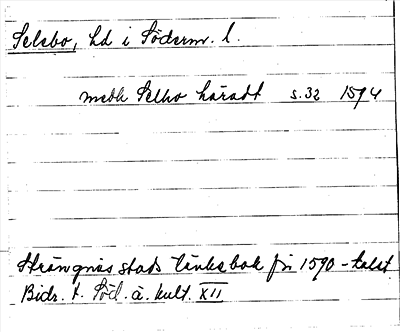 Selebo, hd i Söderm. l.
medh Selbo häradt s. 32 1594
Strängnäs stads tänkebok fr. 1590-talet
Bidr. t. Söd. ä. kult. XII